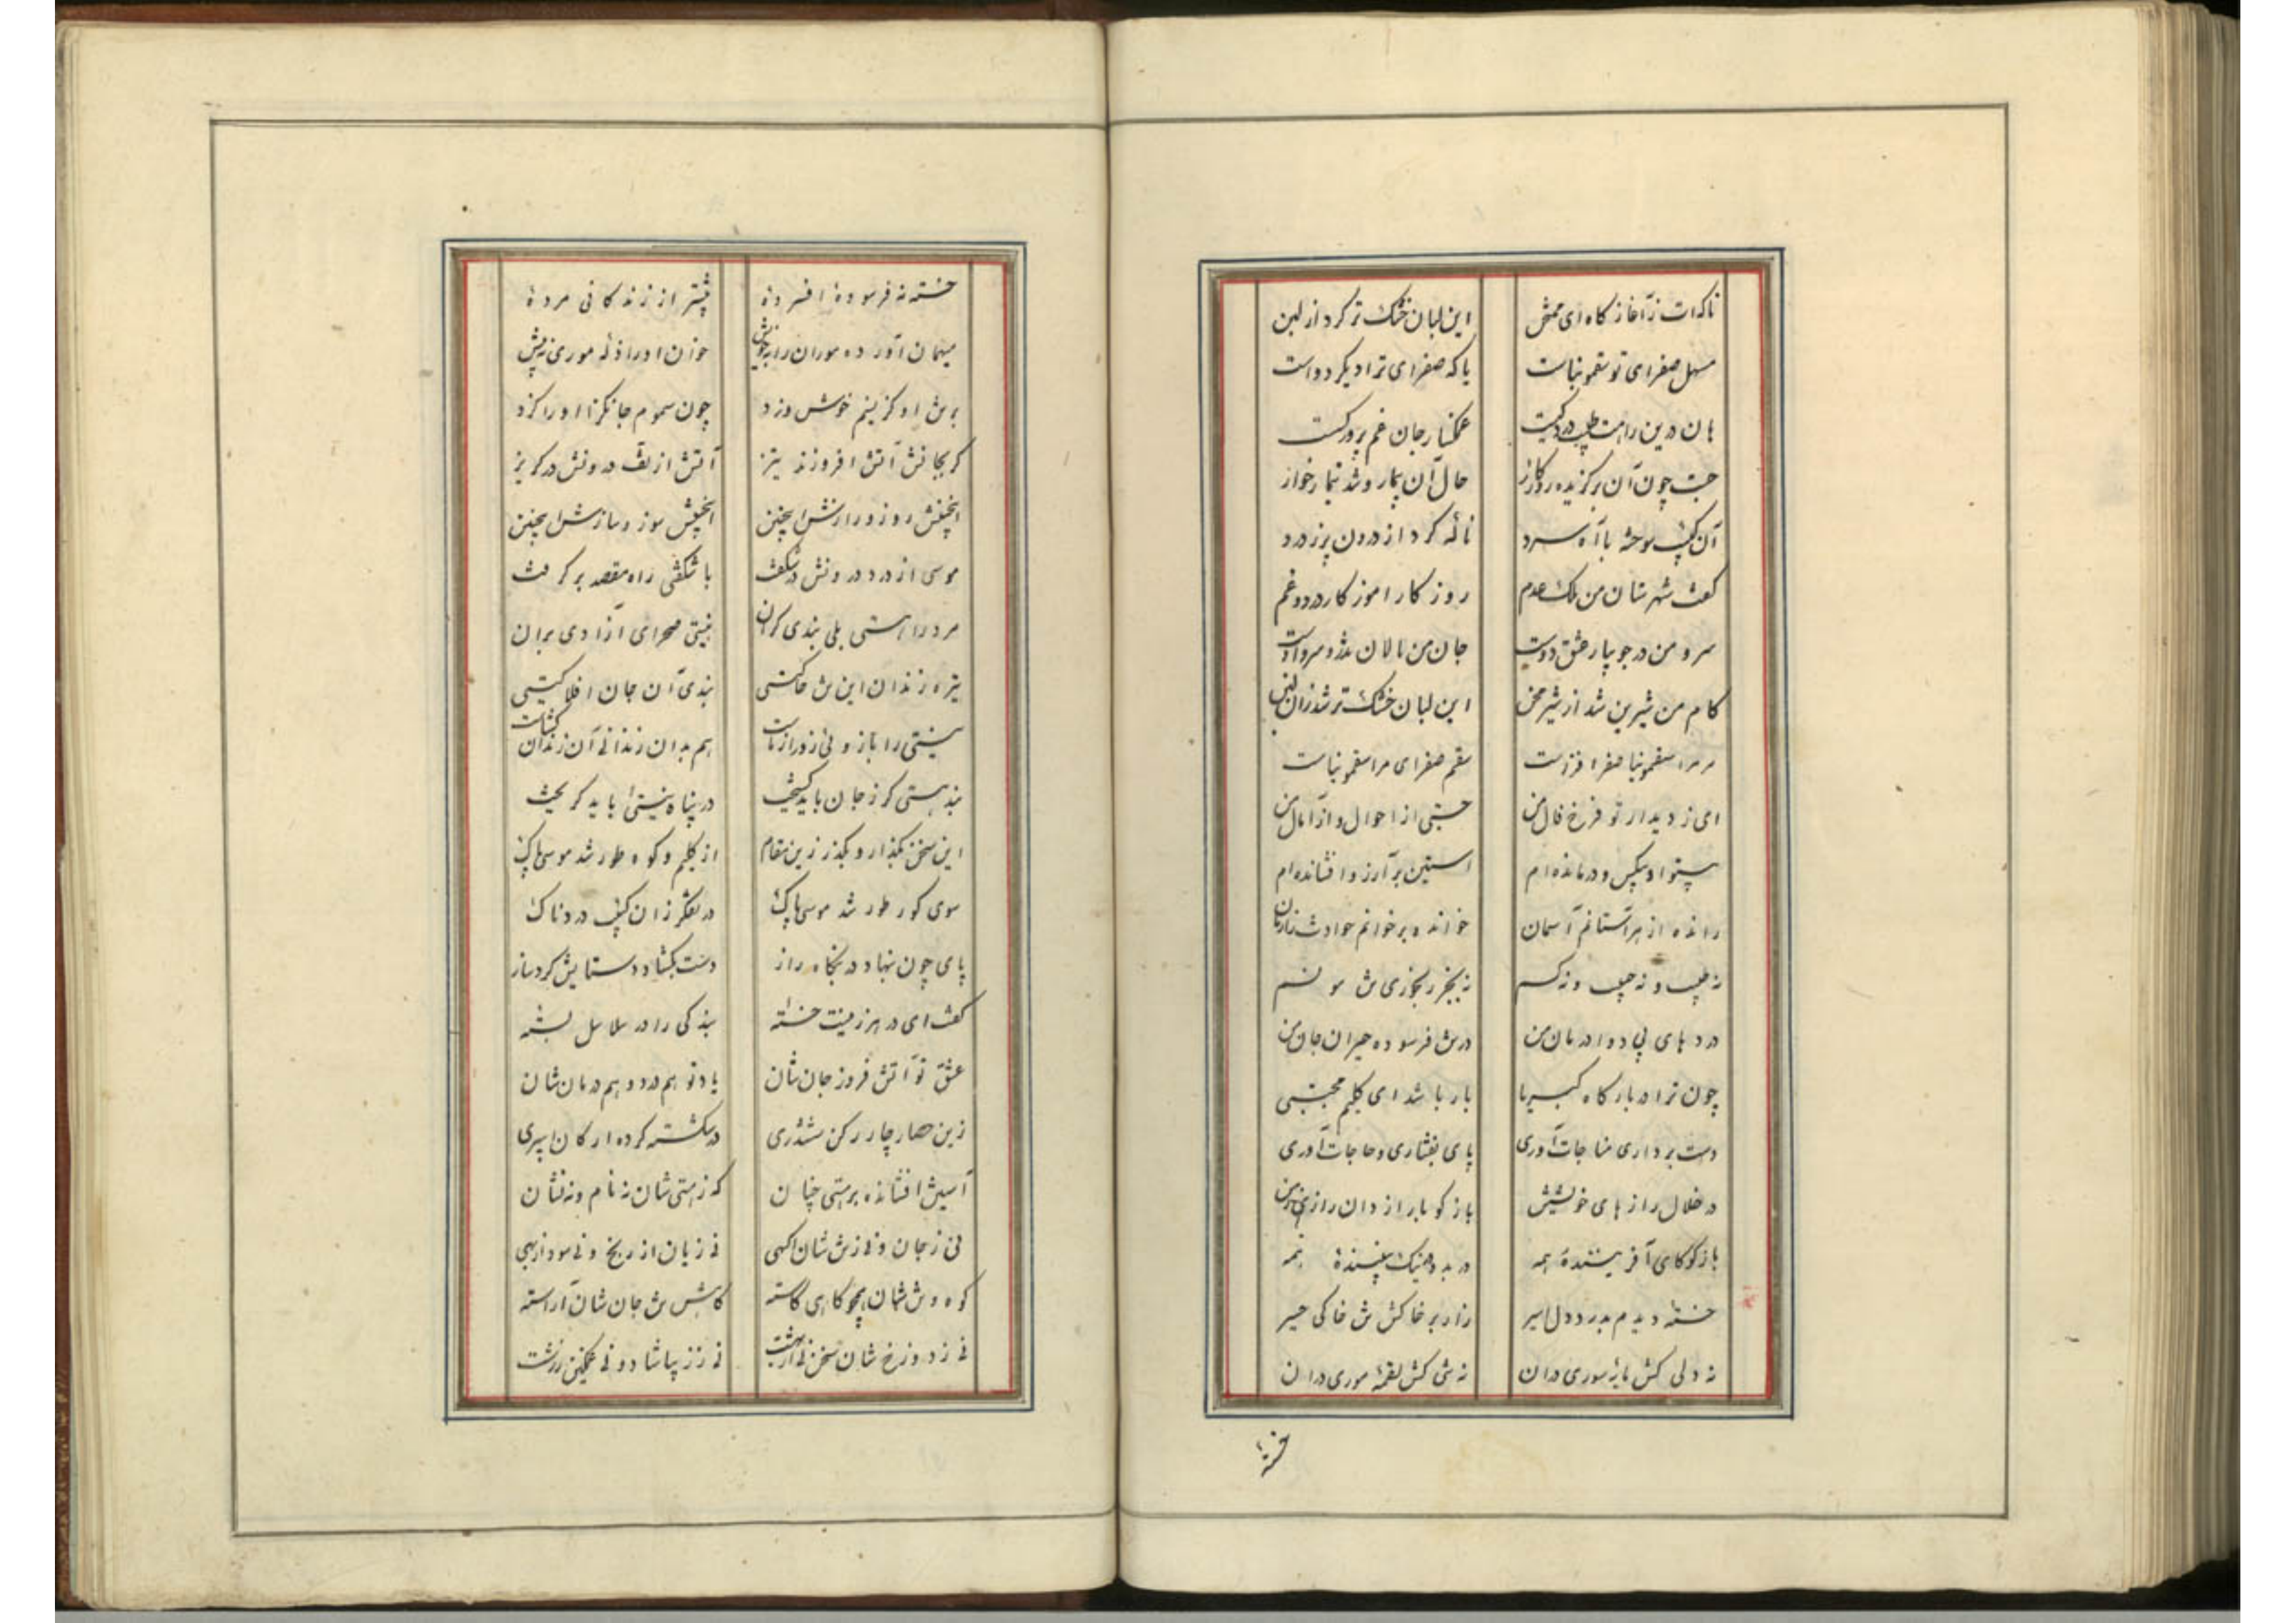 این لبان خشک تر کرد از لبن
مسهل صفرای تو سقمونیاست یا که صفرای ترا دیگر دواست
هان درین رامت طبیب درد کیست غمگسار جان غم پرورد کیست
جست چون آن برگزیده روزگار حال آن بیمار و شد تیمار خوار
آن کئیب سوخته با آه سرد ناله کرد از درون پر ز درد
گفت شهرستان من ملک عدم روزگار آموزگار درد و غم
سرو من در جویبار عشق دوست جان من نالان تذرو سرو اوست
کام من شیرین شد از شیر محن این لبان خشک تر شد زان لبن
مر مرا سقمونیا صفرا فزاست سقم صفرای مرا سقمونیاست
ای ز دیدار تو فرخ فال من جستی از احوال و از آمال من
بینوا و بیکس و درمانده‌ام آستین بر آرزو افشانده‌ام
رانده از هر آستانم آسمان خوانده بر خوانم حوادث
نه طبیب و نه حبیب و نه کسم نه بجز رنجوری تن مونسم
دردهای بی دوا درمان من در تن فرسوده حیران جان من
چون ترا در بارگاه کبریا بار باشد ای کلیم مجتبی
دست برداری مناجات آوری پای بفشاری و حاجات آوری
در خلال رازهای خویشتن بازگو با رازدان راز من
بازگو کای آفریننده همه در بد و نیک پسنده همه
خسته دیدم بدرد دل اسیر زار بر خاکش تن خاکی حسیر
نه دلی کش مایه سوری در آن نه تنی کش لقمه موری در آن
خسته
خسته نه فرسوده افسرده بیشتر از زندگانی مرده
میهمان آورده موران را بخوش خوان او را زله موری نه بیش
بر تن او گر نسیم خوش وزد چون سموم جانگزا او را گزد
گر بجانش آتش افروزند تیز آتش از تف درونش در گریز
اینچنینش روز و رازش اینچنین اینچنینش سوز و سازش اینچنین
موسی از درد درونش در شگفت با شگفتی راه مقصد بر گرفت
مرد را هستی بلی بندی گران نیستی صحرای آزادی بر آن
تیره زندان این تن خاکیستی بندی آن جان افلاکیستی
نیستی را بازوئی زورآزماست هم بدان زندانی آن زندان گشاست
بند هستی گر ز جان باید گسیخت در پناه نیستی باید گریخت
این سخن بگذار و بگذر زین مقام از کلیم و کوه طور
سوی کوه طور شد موسی پاک در تفکر زان کئیب دردناک
پای چون بنهاد در بنگاه راز دست بگشاد و ستایش کرد ساز
گفت ای در هر زمینت خسته بندگی را در سلاسل بسته
عشق تو آتش فروز جان شان یاد تو هم درد و هم درمان شان
زین حصار چار رکن ششدری در شکسته کرده ارکان
آستین افشانده بر هستی چنان که ز هستی شان نه نام و نه نشان
نی ز جان و نی ز تن شان آگهی نی زیان از رنج و نی سود از بهی
کوه و ش شان همچو کاهی کاسته کاهش تن جان شان آراسته
نی ز دوزخ شان سخن نی از بهشت نی ز زیبا شاد و نی غمگین ز زشت